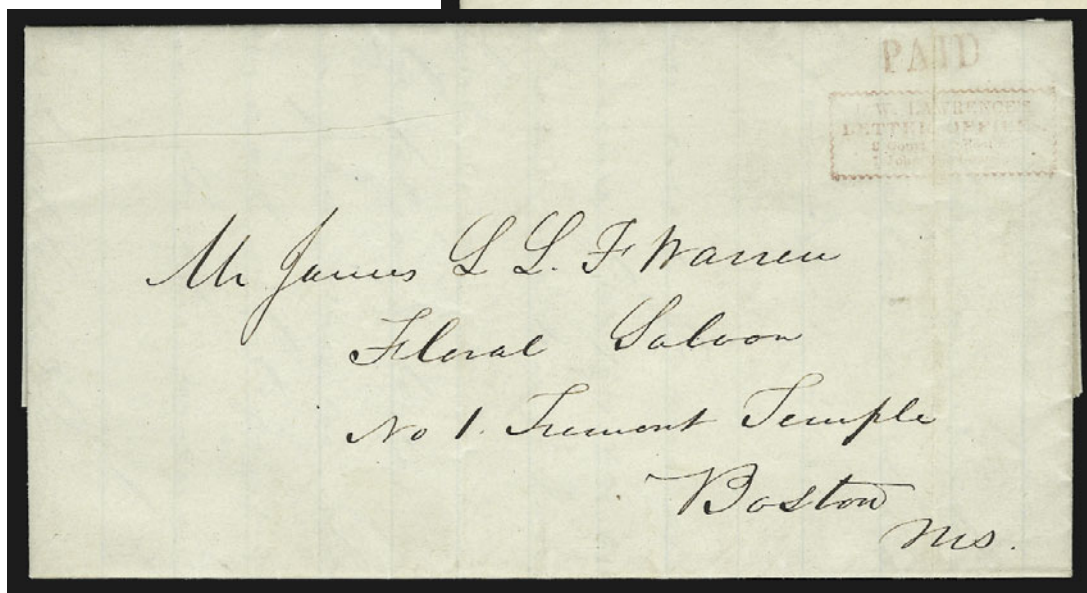 PAID
W. LAWRENCE'S
LETTER OFFICE
Mr James L L. F Warren
Floral Saloon
No 1. Tremont Temple
Boston
Ms.